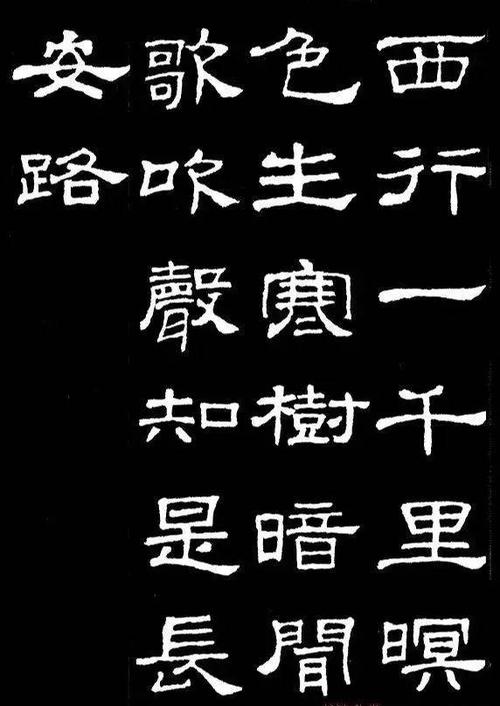 西行一千里暝
色生寒樹暗聞
歌吹聲知是長
安路